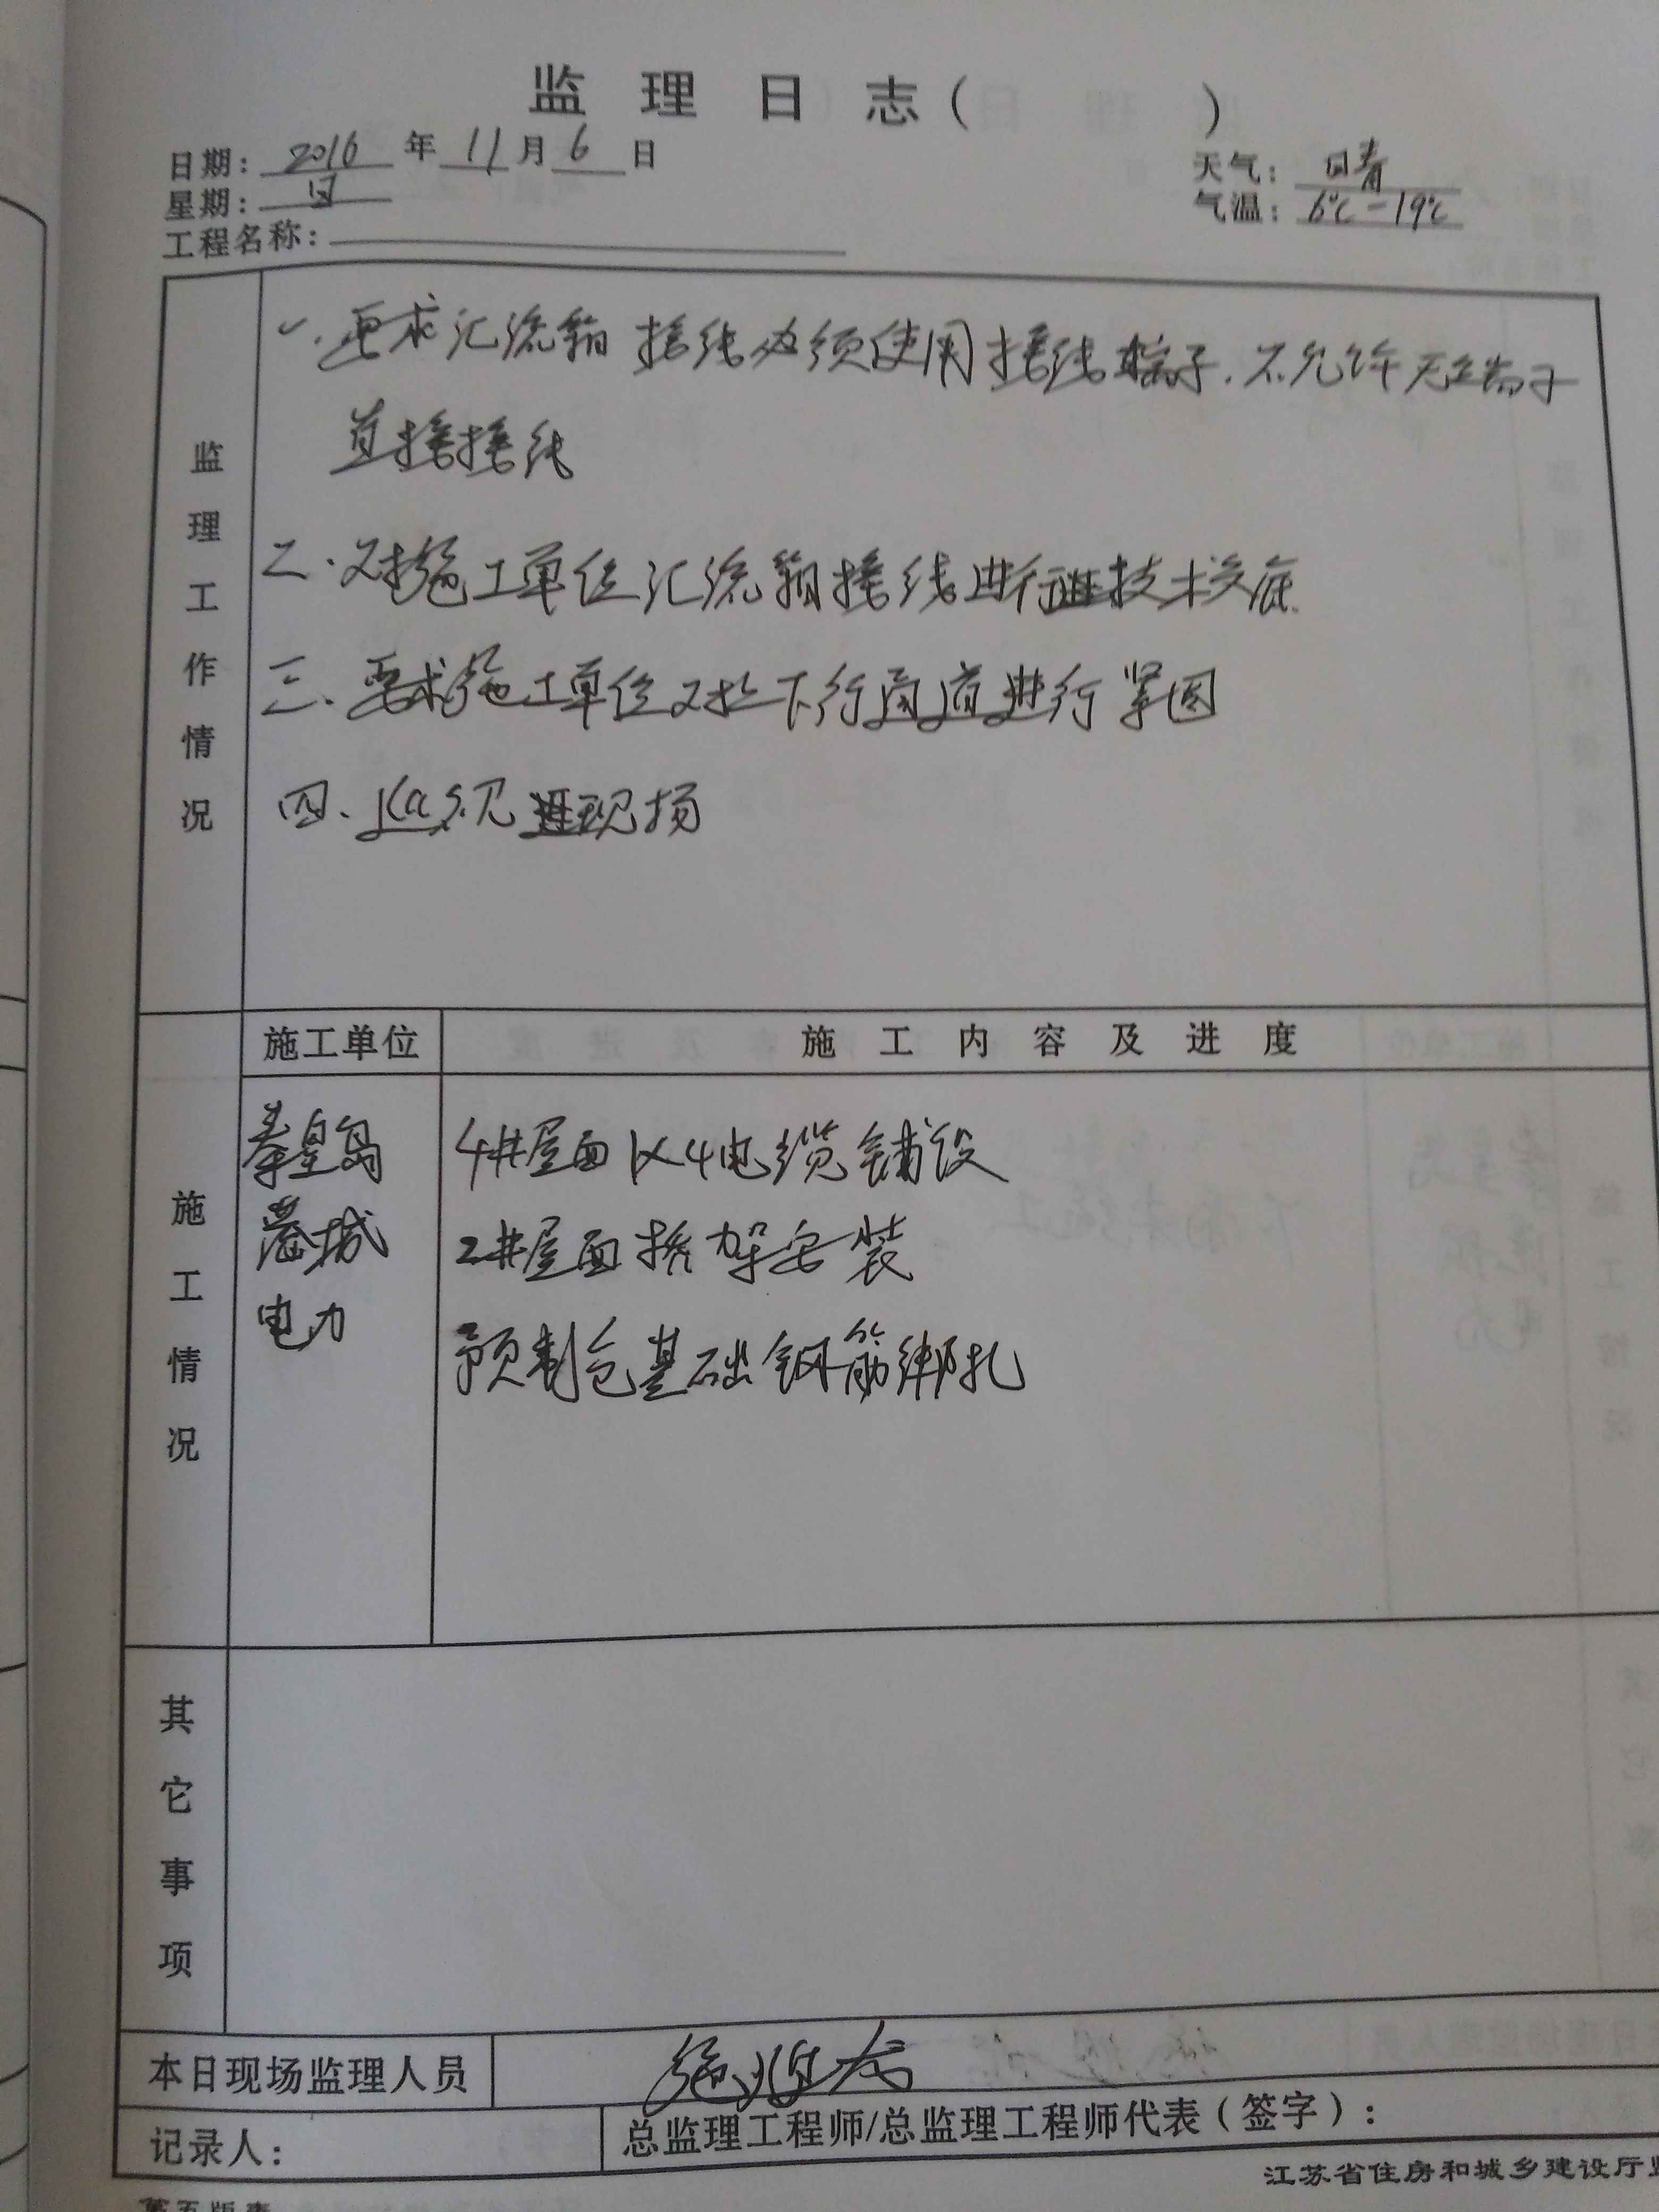 监理日志（ ）
日期：2016年11月6日
天气：晴
星期：日
气温：6℃-19℃
工程名称：
监理工作情况
一.要求汇流箱接线必须使用接线端子.不允许无端子
直接接线
二.对施工单位汇流箱接线进行技术交底
三.要求施工单位对下行通道进行紧固
四.巡视现场
施工单位
施工内容及进度
施工情况
秦皇岛
港城
电力
4#屋面1×4电缆铺设
2#屋面桥架安装
预制仓基础钢筋绑扎
其它事项
本日现场监理人员
记录人：
总监理工程师/总监理工程师代表（签字）：
江苏省住房和城乡建设厅监
第五版表